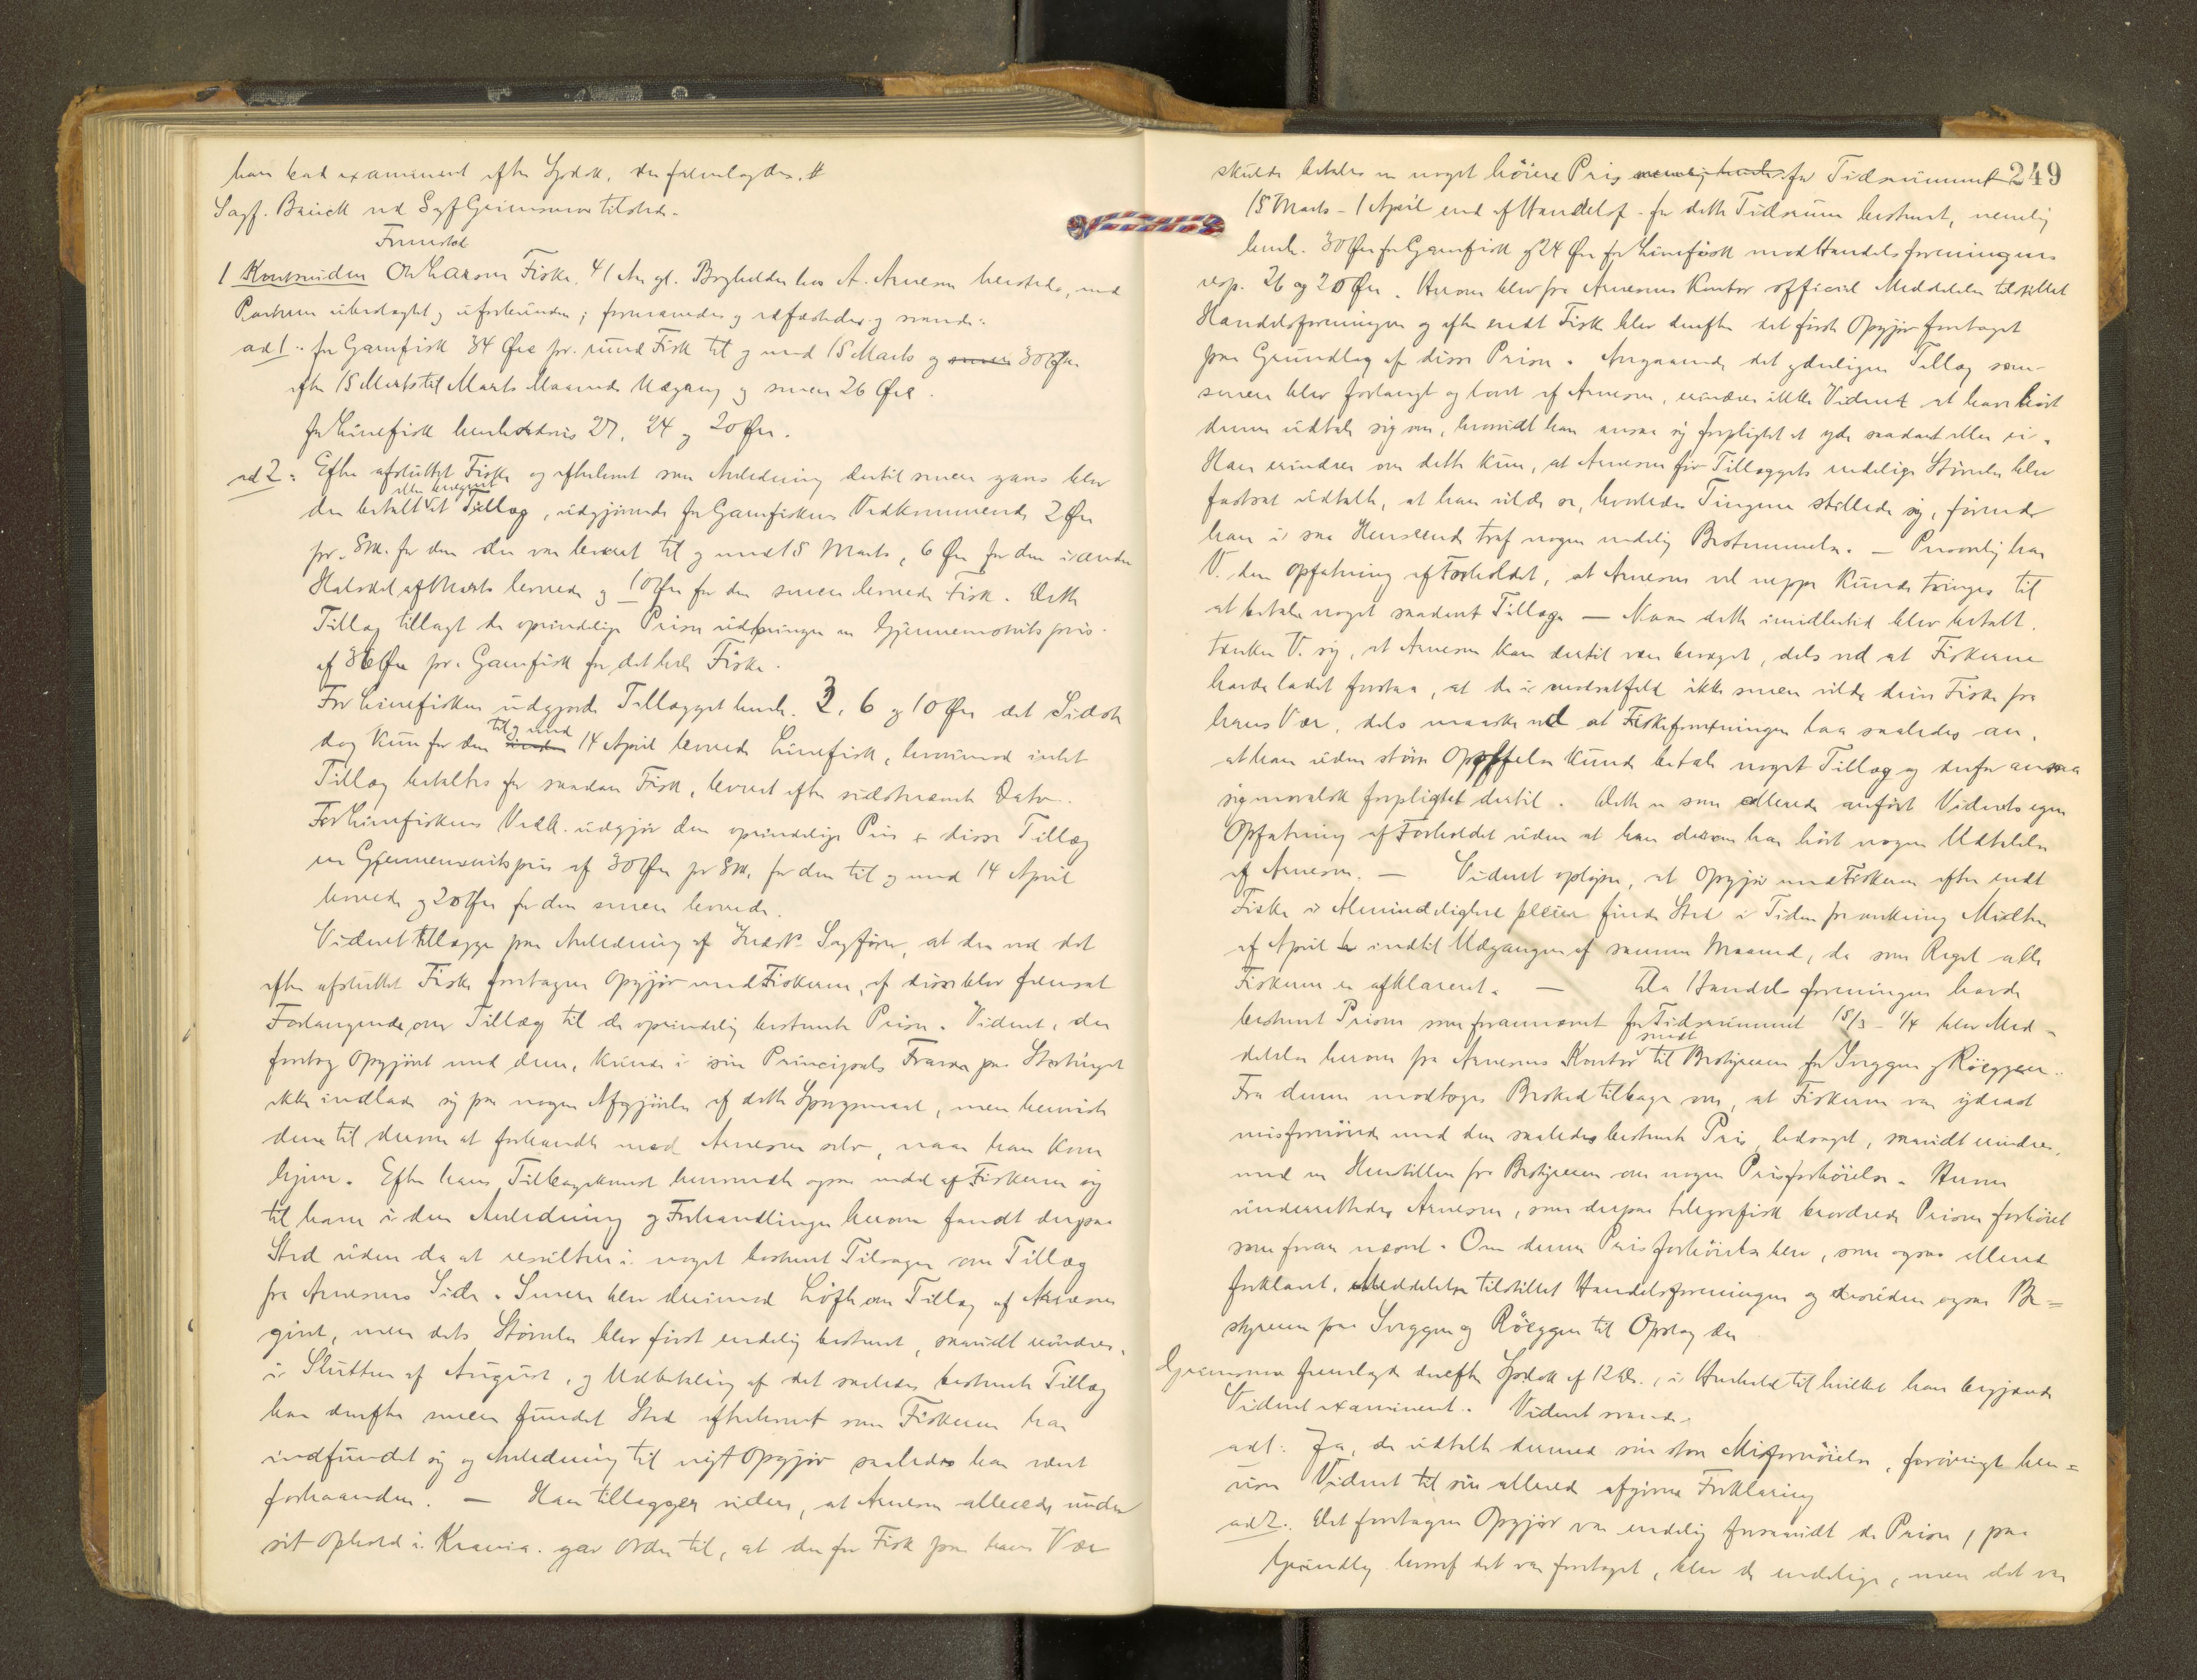 han bad examineret efter Spdok. der fremlagdes. #
Sagf. Bauck ved Sagf Grimsmo tilstede.
Fremstod
1 Kontravidne Ole Larsen Fiske, 41 Aar gl. Bogholder hos A. Arnesen hersteds, med
Parterne ubeslægtet og uforbunden; formanedes og edfæstedes og svarede:
ad 1: for Garnfisk 34 Øre pr. rund Fisk til og med 15 Marts og 30 Øre
efter 15 Marts til Marts Maaneds Udgang og senere 26 Øre.
for Linefisk henholdsvis 27, 24 og 20 Øre.
ad 2: Efter afsluttet Fiske og efterhvert som Anledning dertil senere gaves blev
der betalt et Tillæg, udgjørende for Garnfiskens Vedkommende 2 Øre
pr. Stk. for den der var leveret til og med 15 Marts, 6 Øre for den i anden
Halvdel af Marts leverede og 10 Øre for den senere leverede Fisk. Dette
Tillæg tillagt de oprindelige Priser udbringer en Gjennemsnitspris
af 36 Øre pr. Garnfisk for det hele Fiske.
For Linefisken udgjorde Tillægget henh. 3, 6 og 10 Øre det Sidste
dog kun for den til og med 14 April leverede Linefisk, hvorimod intet
Tillæg betaltes for saadan Fisk, leveret efter sidstnævnte Dato.
For Linefiskens Vedk. udgjør den oprindelige Pris + disse Tillæg
en Gjennemsnitspris af 30 Øre pr Stk. for den til og med 14 April
leverede og 20 Øre for den senere leverede.
Vidnet tillægger paa Anledning af Indst. Sagfører, at der ved det
efter afsluttet Fiske foretagne Opgjør med Fiskerne, af disse blev fremsat
Forlangende om Tillæg til de oprindelig bestemte Priser. Vidnet, der
foretog Opgjøret med dem, kunde i sin Principals Fravær paa Stortinget
ikke indlade sig paa nogen Afgjørelse af dette Spørgsmaal, men henviste
dem til derom at forhandle med Arnesen selv, naar han kom
hjem. Efter hans Tilbagekomst henvendte ogsaa endel af Fiskerne sig
til ham i den Anledning og Forhandlinger herom fandt derpaa
Sted uden da at resultere i noget bestemt Tilsagn om Tillæg
fra Arnesens Side. Senere blev derimod Løfte om Tillæg af Arnesen
givet, men dets Størrelse blev først endelig bestemt, saavidt erindres,
i Slutten af August, og Udbetaling af det saaledes bestemte Tillæg
har derefter senere fundet Sted efterhvert som Fiskerne har
indfundet sig og Anledning til nyt Opgjør saaledes har været
forhaanden. — Han tillægger videre, at Arnesen allerede under
sit Ophold i Krania. gav Ordre til, at der for Fisk paa hans Vær
249
skulde betales en noget høiere Pris for Tidsrummet
15 Marts - 1 April end af Handelsf. for dette Tidsrum bestemt, nemlig
henh. 30 Øre for Garnfisk og 24 Øre for Linefisk mod Handelsforeningens
resp. 26 og 20 Øre. Herom blev fra Arnesens Kontor officiel Meddelelse tilstillet
Handelsforeningen og efter endt Fiske blev derefter det første Opgjør foretaget
paa Grundlag af disse Priser. Angaaende det yderligere Tillæg som
senere blev forlangt og lovet af Arnesen, erindrer ikke Vidnet at have hørt
denne udtale sig om, hvorvidt han ansaa sig forpligtet at yde saadant eller ei.
Han erindrer om dette kun, at Arnesen før Tillæggets endelige Størrelse blev
fastsat udtalte, at han vilde se, hvorledes Tingene stillede sig, førend
han i saa Henseende traf nogen endelig Bestemmelse. — Personlig har
V. den Opfatning af Forholdet, at Arnesen vel neppe kunde tvinges til
at betale noget saadant Tillæg — Naar dette imidlertid blev betalt,
tænker V. sig, at Arnesen kan dertil være bevæget, dels ved at Fiskerne
havde ladet forstaa, at de i modsat fald ikke senere vilde drive Fiske fra
hans Vær, dels maaske ved at Fiskeforretningen laa saaledes an,
at han uden større Opofrelse kunde betale noget Tillæg og derfor ansaa
sig moralsk forpligtet dertil. Dette er som allerede anført Vidnets egen
Opfatning af Forholdet uden at han derom har hørt nogen Udtalelse
af Arnesen. — Vidnet oplyser, at Opgjør med Fiskerne efter endt
Fiske i Almindelighed pleier finde Sted i Tiden fra omkring Midten
af April indtil Udgangen af samme Maaned, da som Regel alle
Fiskerne er afklareret. — Da Handelsforeningen havde
bestemt Prisen som forannævnt for Tidsrummet 15/3 - 1/4 blev Med-
delelse herom fra Arnesens Kontor sendt til Bestyreren for Svaggen og Røeggen.
Fra denne modtoges Besked tilbage om, at Fiskerne var yderst
misfornøiede med den saaledes bestemte Pris, ledsaget, saavidt erindres,
med en Henstillen fra Bestyreren om nogen Prisforhøielse. Herom
underrettedes Arnesen, som derpaa telegrafisk beordrede Prisen forhøiet
som foran nævnt. Om denne Prisforhøielse blev, som ogsaa allerede
forklaret, Meddelelse tilstillet Handelsforeningen og desuden ogsaa Be=
styreren paa Svaggen og Røeggen til Opslag der
Grimsmo fremlagde derefter Spdok af 12 ds., i Henhold til hvilket han begjærede
Vidnet examineret. Vidnet svarede
ad 1. Ja, de udtalte dermed sin store Misfornøielse, forøvrigt hen=
viser Vidnet til sin allerede afgivne Forklaring
ad 2. Det foretagne Opgjør var endelig forsaavidt de Priser, paa
Grundlag hvoraf det var foretaget, blev de endelige, men det var